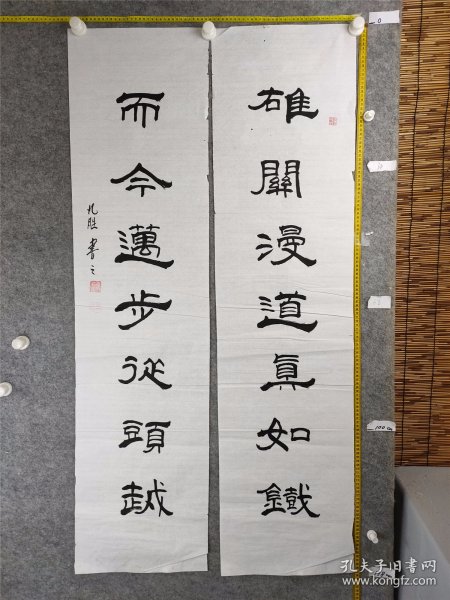 雄關漫道真如鐵
而今邁步從頭越
書之
孔夫子旧书网
www.kongfz.com